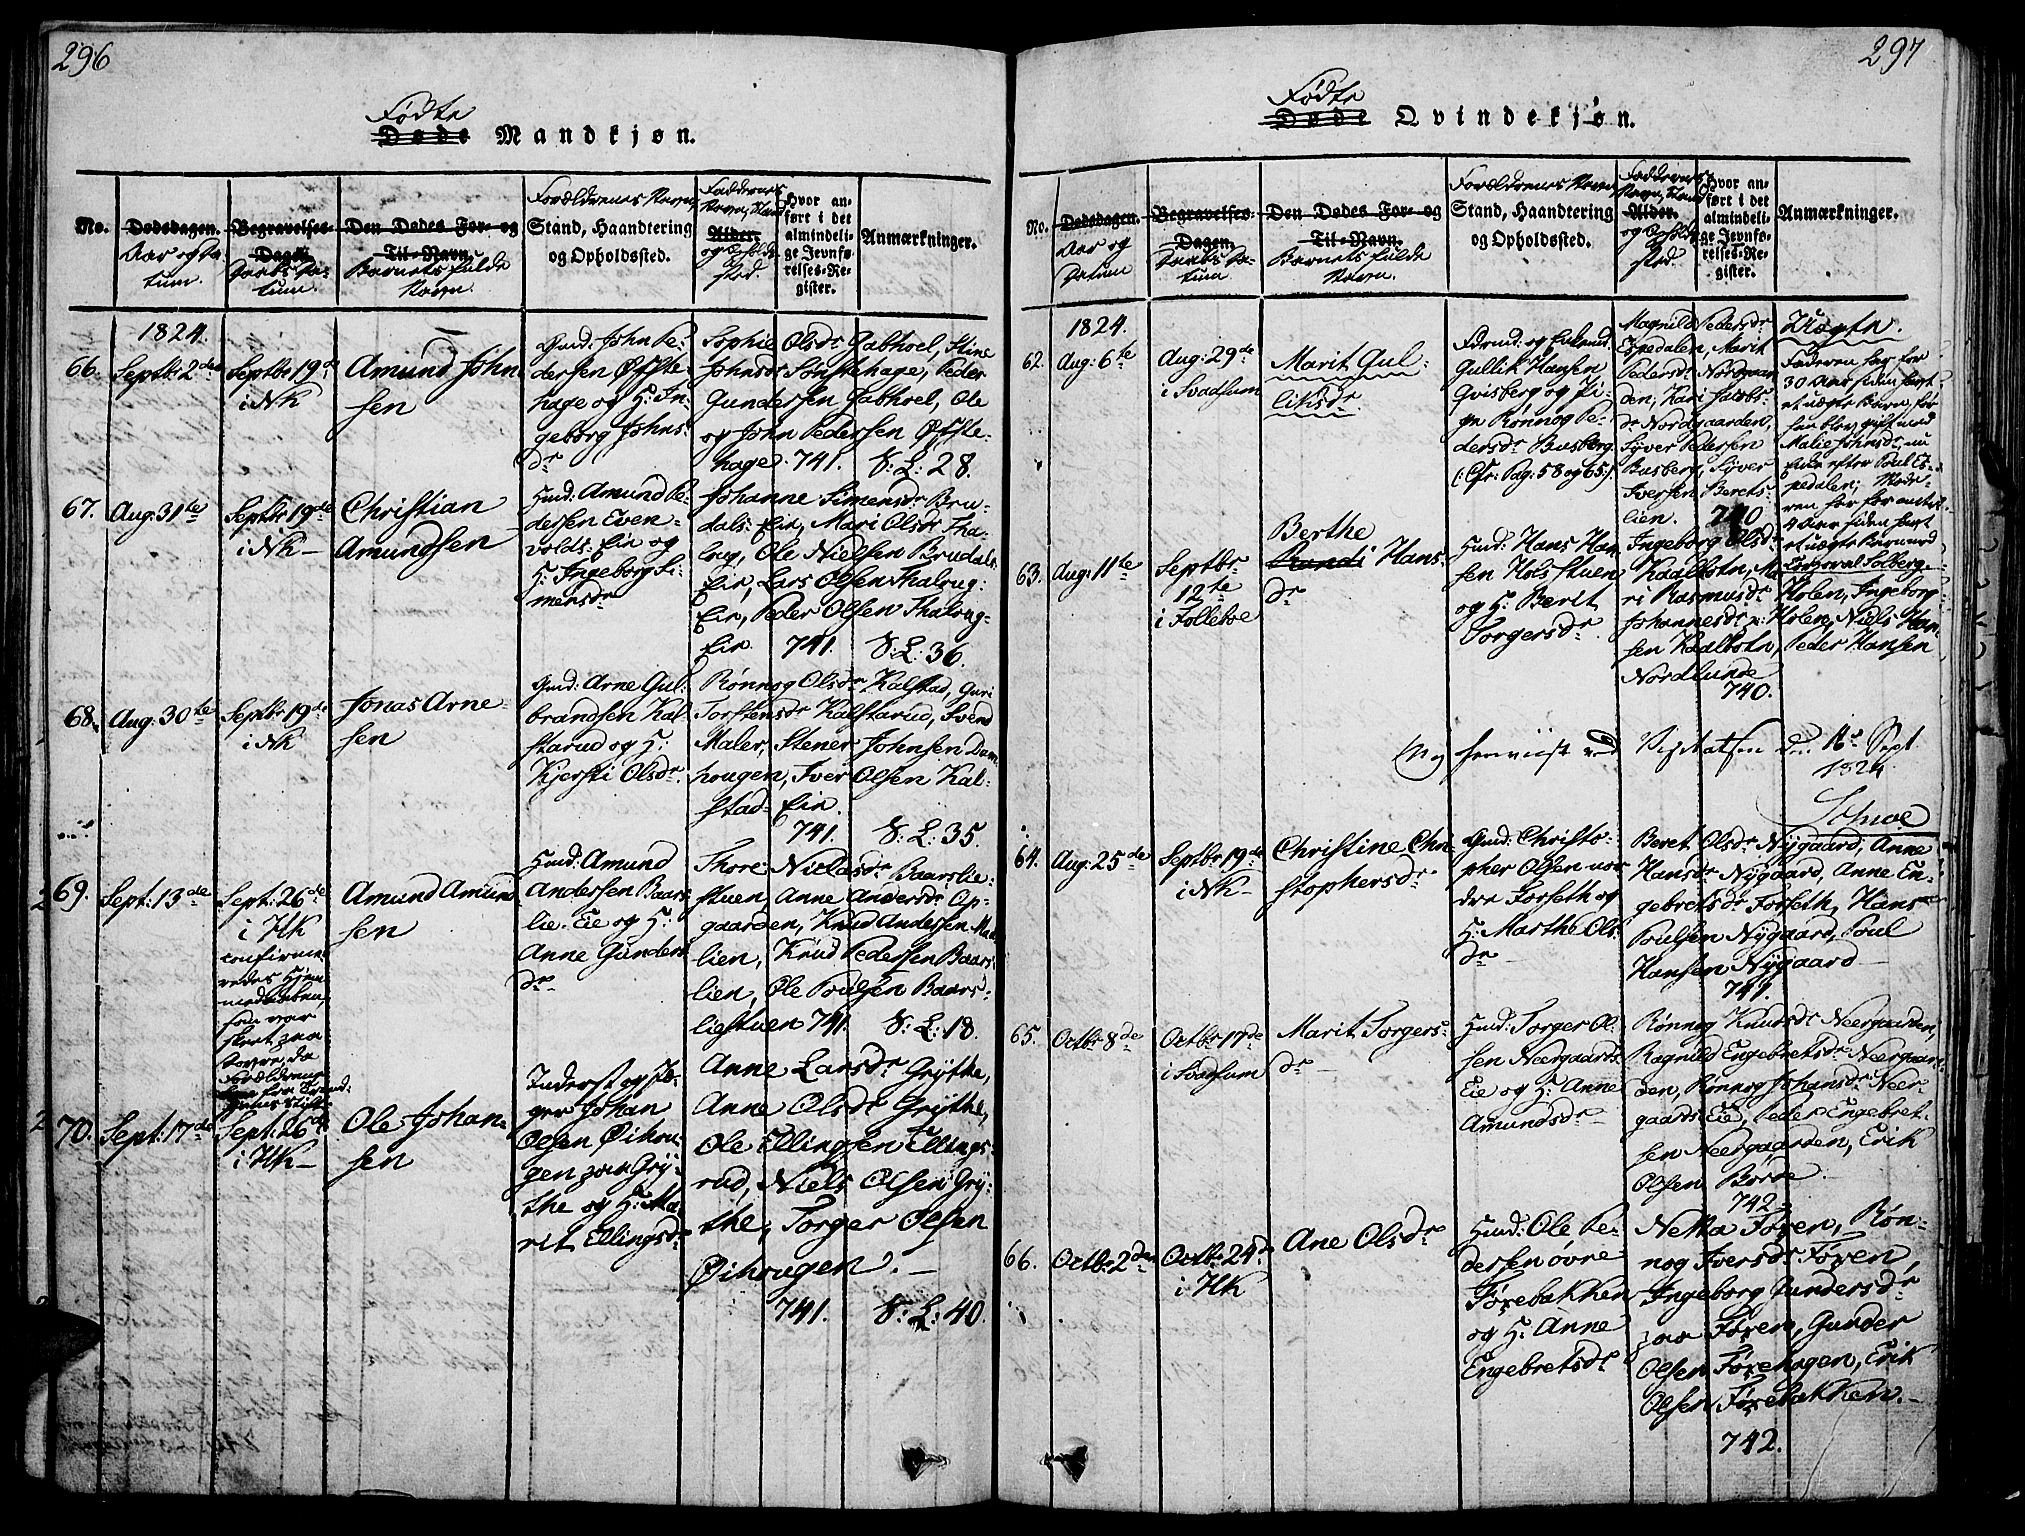 296
Fødte
Døde Mandkjøn.
No.
Dødsdagen.
Aar og Da-
tum.
Begravelses-
Dagen.
Daabs Da-
tum.
Den Dødes For- og
Til-Navn.
Barnets fulde
Navn.
Forældrenes Navn,
Stand, Haandtering
og Opholdssted.
Faddernes
Navn, Stand
Alder.
og Opholds-
sted.
Hvor an-
ført i det
almindeli-
ge Jevnfø-
relses-Re-
gister.
Anmærkninger.
1824.
66. Septbr 2den
Septbr 19de
i NK
Amund John
sen
Gmd: John Pe-
dersen Øfste-
hage og H: In-
geborg Johns-
dr
Sophie Olsdr Gabhoel, Stine
Johnsdr Sønstehage, Peder
Gundersen Gabhoel, Ole
og John Pedersen Øfste-
hage. 741. V: L: 28.
67. Aug: 31te
Septbr 19de
i NK
Christian
Amundsen
Hmd: Amund Pe-
dersen Even-
volds: Eie og
H: Ingeborg Si-
mensdr
Johanne Simensdr Bru-
dals: Eie, Mari Olsdr Tha-
lrug, Ole Nielsen Brudals
Eie, Lars Olsen Thalrug-
Eie, Peder Olsen Thalrug-
Eie. 741. V: L: 36.
68. Aug: 30te
Septbr 19de
i NK
Jonas Arne-
sen
Gmd: Arne Gul-
brandsen Kal-
starud og H:
Kjersti Olsdr.
Rønnog Olsdr Kalstad, Guri
Torstensdr Kalstarud, Svend
Maler, Stener Johnsen Dam-
hougen, Iver Olsen Kal-
stad-Eie.
741. V: L: 35.
69. Sept: 13de
Sept: 26de
i HK
confirme-
redes Hjem-
medaaben,
som var
skeet paa
Amund Amund
sen
Hmd: Amund
Andersen Baars-
lie-Eie og H:
Anne Gunders
dr
Thore Nielsdr Baarslie-
stuen, Anne Andersdr Op-
gaarden, Knud Andersen
lien, Knud Pedersen Baars-
lien, Ole Poulsen Baars-
liestuen 741. V: L: 18.
70. Sept: 17de
Sept: 26de
i HK
Ole Johan-
sen
Inderst og
Johan
Olsen Øihou-
gen paa Gry-
the og H: Ma-
rit Ellingsdr
Anne Larsdr Grythe,
Anne Olsdr Grythe,
Ole Ellingsen Ellings-
rud, Niels Olsen Gry-
the, Torger Olsen
Øihougen.
741. V: L: 40.
297
Fødte
Døde Qvindekjøn.
No.
Dødsdagen.
Aar og
Datum
Begravelses-
Dagen.
Daabs Da-
tum.
Den Dødes For- og
Til-Navn.
Barnets fulde
Navn.
Forældrenes Navn,
Stand, Haandtering
og Opholdssted.
Faddernes
Navn, Stand
Alder.
og Opholds-
sted.
Hvor an-
ført i det
almindeli-
ge Jevnfø-
relses-Re-
gister.
Anmærkninger.
1824.
62. Aug: 6te
Aug: 29de
i Svadsum
Marit Gul-
liksdr
Gullik Hansen
Qvisberg og Pi-
ge Rønnog Pe-
dersdr Busberg
(: Cfr: Pag: 58 og 65:)
Magnild Pedersdr
Espedalen, Marit
Pedersdr Nordgaar-
den, Kari Jacobs-
dr Nordgaarden,
Syver Pedersen
Busberg, Syver
Iversen Berets-
lien. 740
Uægte.
Faderen har for
30 Aar siden havt
et uægte Barn, før
han blev gift med
Malie Johnsdr, nu
Enke efter Poul Es-
pedalen; Mode-
ren har for omtrt
4 Aar siden havt
et uægte Barn med
Corporal Solberg
63. Aug: 11te
Septbr
12te
i Follebue
Berthe
Randi Hans-
dr
Hmd: Hans Han-
sen Holsstuen
og H: Berit
Torgersdr.
Ingeborg Olsdr
Kaalbotn, Ma-
ri Rasmusdr Holen, Ingeborg
Johannesdr n: Holen, Niels Han-
sen Kaalbotn, Peder Hansen
Nordlunde
740.
Sept
1824
64. Aug: 25de
Septbr 19de
i NK
Christine Chri
stophersdr
Gmd: Christo-
pher Olsen nor-
dre Forseth og
H: Marthe Ols-
dr
Beret Olsdr Nygaard, Anne
Hansdr Nygaard, Anne En-
gebretsdr Forseth, Hans
Poulsen Nygaard, Poul
Hansen Nygaard
741.
65. Octbr 8de
Octbr 17de
i Svadsum
Marit Torgers-
dr
Hmd: Torger Ol-
sen Neergaards-
Eie og H: Anne
Amundsdr
Rønnog Knudsdr Neergaarden,
Ragnild Engebretsdr Neergaar-
den, Rønnog Johansdr Neer-
gaards: Eie, Peder Engebret-
sen Neergaarden, Erik
Olsen Børde
742
66. Octbr 2den
Octbr 24de
i HK
Ane Olsdr
Hmd: Ole Pe-
dersen øvre
Forebakken
og H: Anne
Engebretsdr
Netta Foren, Røn-
nog Iversdr Foren,
Ingeborg Gundersdr
paa Foren, Gunder
Olsen Forehagen, Erik
Olsen Forebakken.
742.